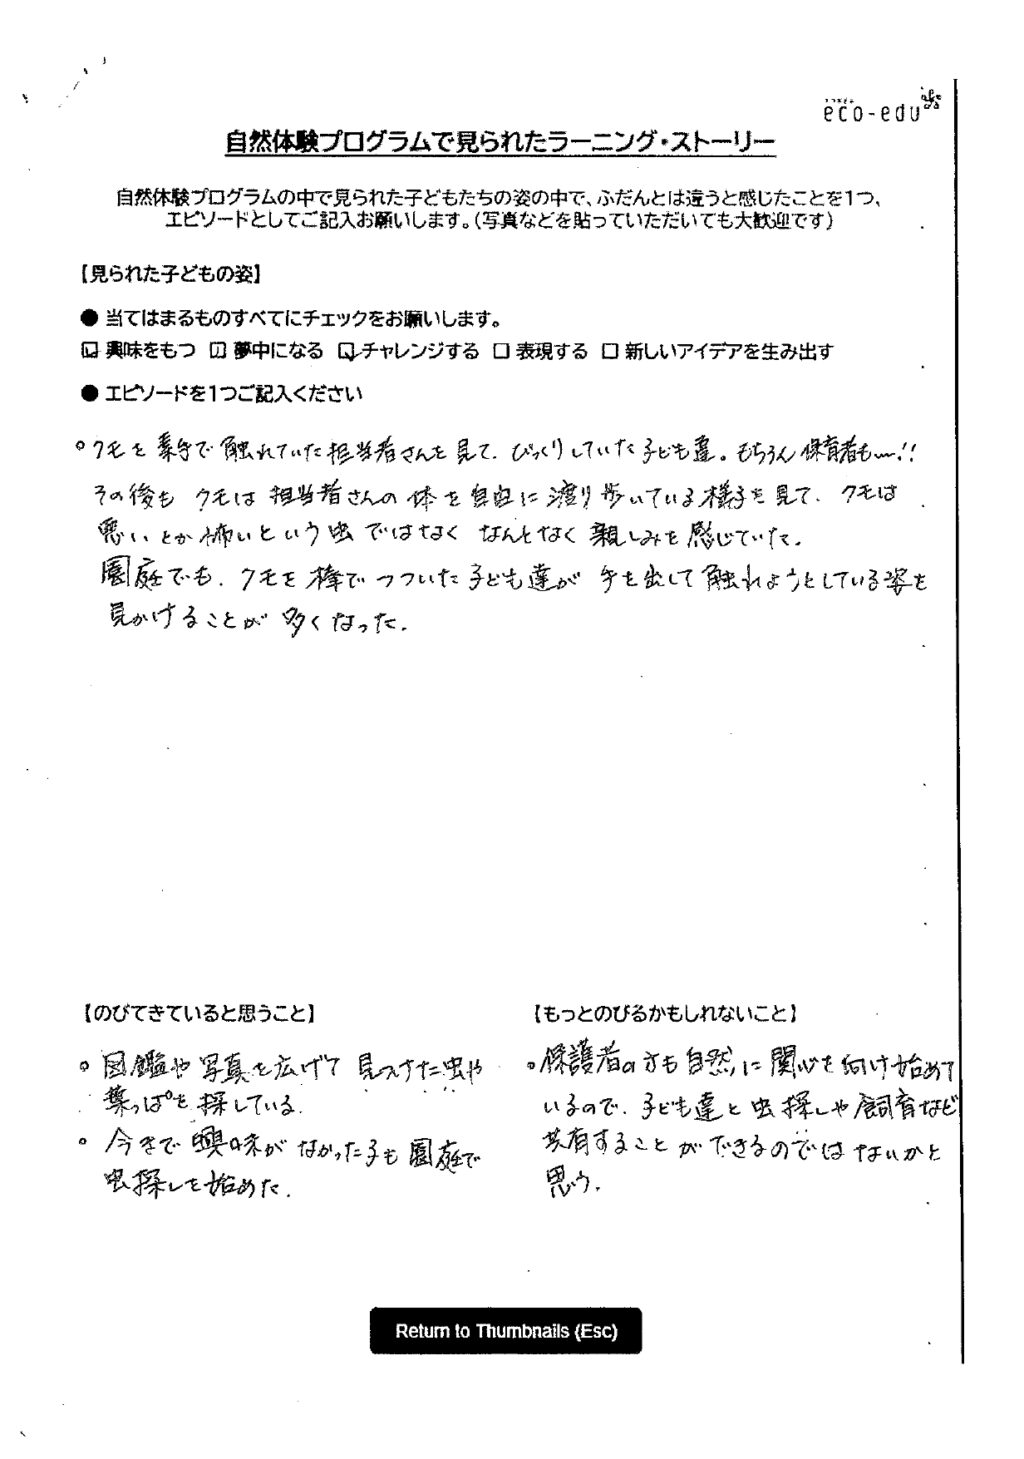 eco-edu
自然体験プログラムで見られたラーニング・ストーリー
自然体験プログラムの中で見られた子どもたちの姿の中で、ふだんとは違うと感じたことを1つ、
エピソードとしてご記入お願いします。（写真などを貼っていただいても大歓迎です）
【見られた子どもの姿】
● 当てはまるものすべてにチェックをお願いします。
☑ 興味をもつ ☑ 夢中になる ☑ チャレンジする □ 表現する □ 新しいアイデアを生み出す
● エピソードを1つご記入ください
。クモを素手で触れていた担当者さんを見て、びっくりしていた子ども達。もちろん保育者も〜!!
その後も クモは 担当者さんの体を自由に渡り歩いている様子を見て、クモは
悪いとか怖いという虫ではなく なんとなく親しみを感じていた。
園庭でも、クモを棒でつついた子ども達が 手を出して触れようとしている姿を
見かけることが多くなった。
【のびてきていると思うこと】
。図鑑や写真を広げて 見つけた虫や
葉っぱを探している。
。今まで興味がなかった子も園庭で
虫探しを始めた。
【もっとのびるかもしれないこと】
。保護者の方も自然に関心を向け始めて
いるので、子ども達と虫探しや飼育など
共有することができるのではないかと
思う。
Return to Thumbnails (Esc)